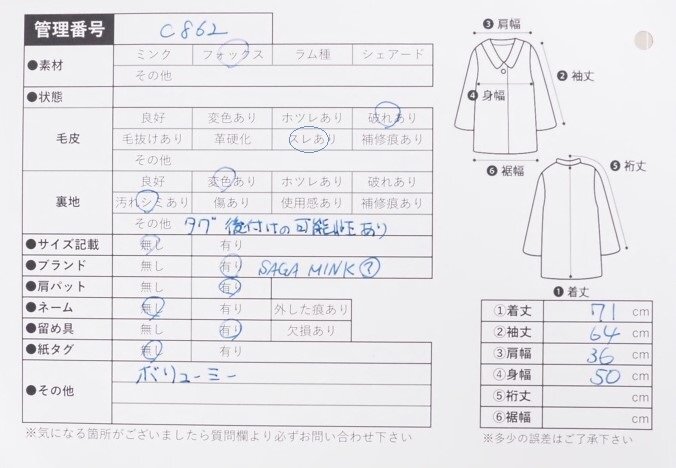 管理番号 C862
●素材 ミンク フォックス ラム種 シェアード
その他
●状態
毛皮 良好 変色あり ホツレあり 破れあり
毛抜けあり 革硬化 スレあり 補修痕あり
その他
裏地 良好 変色あり ホツレあり 破れあり
汚れシミあり 傷あり 使用感あり 補修痕あり
その他 タグ後付けの可能性あり
●サイズ記載 無し 有り
●ブランド 無し 有り SAGA MINK ?
●肩パット 無し 有り
●ネーム 無し 有り 外した痕あり
●留め具 無し 有り 欠損あり
●紙タグ 無し 有り
●その他 ボリューミー
※気になる箇所がございましたら質問欄より必ずお問い合わせ下さい
❸肩幅
❷袖丈
❹身幅
❻裾幅
❺裄丈
❶着丈
①着丈 71 cm
②袖丈 64 cm
③肩幅 36 cm
④身幅 50 cm
⑤裄丈 cm
⑥裾幅 cm
※多少の誤差はご了承下さい